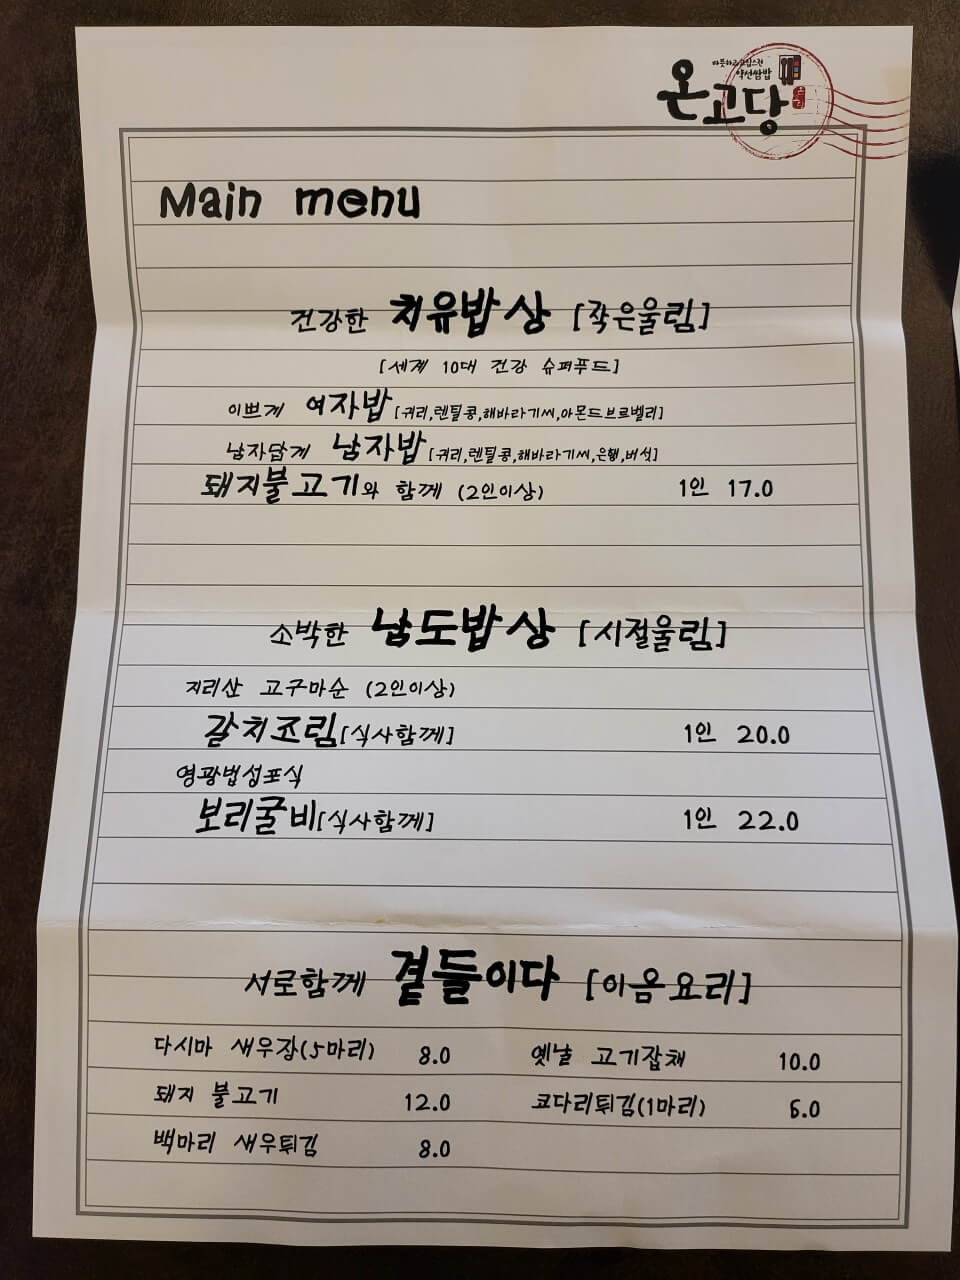 약선쌈밥
온고당
Main menu
건강한 치유밥상 [작은울림]
[세계 10대 건강 슈퍼푸드]
이쁘게 여자밥[귀리,렌틸콩,해바라기씨,아몬드브르벨리]
남자답게 남자밥[귀리,렌틸콩,해바라기씨,은행,버섯]
돼지불고기와 함께 (2인이상) 1인 17.0
소박한 남도밥상 [시절울림]
지리산 고구마순 (2인이상)
갈치조림[식사함께] 1인 20.0
영광법성포식
보리굴비[식사함께] 1인 22.0
서로함께 곁들이다 [이음요리]
다시마 새우장(5마리) 8.0 옛날 고기잡채 10.0
돼지 불고기 12.0 코다리튀김(1마리) 6.0
백마리 새우튀김 8.0